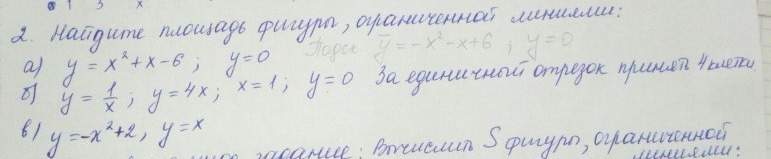 1 3 x
2. Найдите площадь фигуры, ограниченной линиями:
а) y = x² + x - 6; y = 0 Подск y = -x² - x + 6; y = 0
б) y = 1/x; y = 4x; x = 1; y = 0 За единичный отрезок принять 4 клетки
в) y = -x² + 2, y = x
задание: Вычислить S фигуры, ограниченной
линиями: